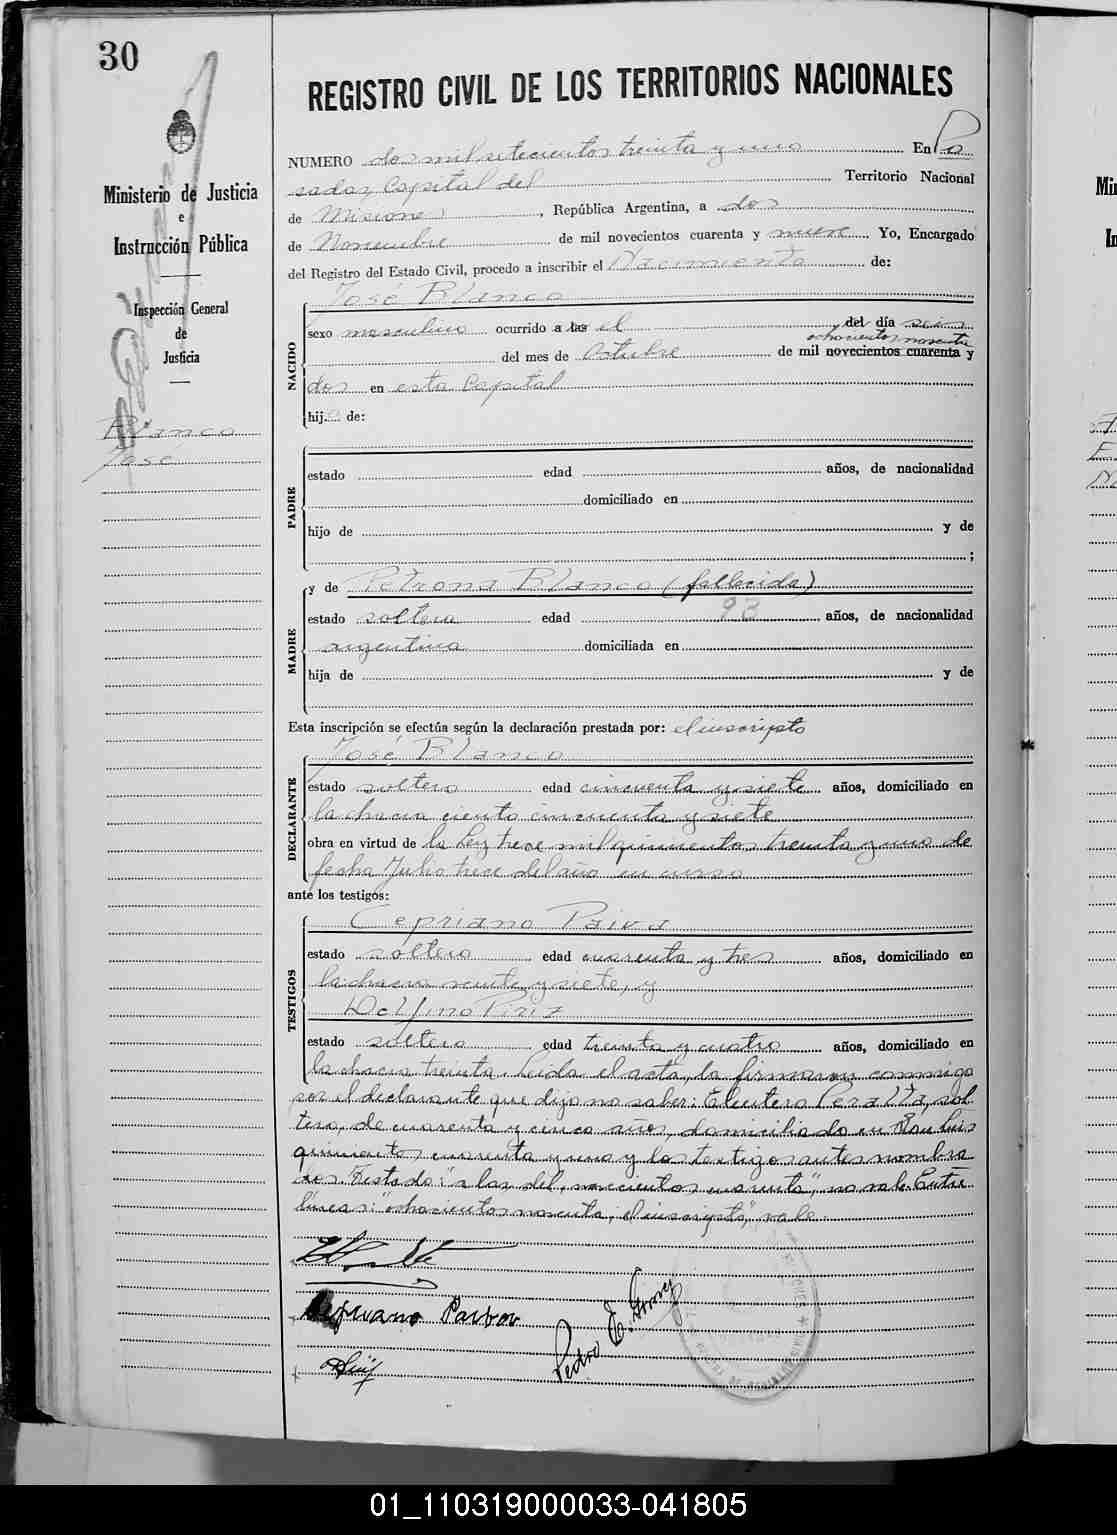 30
Ministerio de Justicia
e
Instrucción Pública
Inspección General
de
Justicia
Blanco
José
REGISTRO CIVIL DE LOS TERRITORIOS NACIONALES
NUMERO dos mil setecientos treinta y uno En Po
sadas, Capital del Territorio Nacional
de Misiones, República Argentina, a dos
de Noviembre de mil novecientos cuarenta y nueve Yo, Encargado
del Registro del Estado Civil, procedo a inscribir el Nacimiento de:
José Blanco
NACIDO
sexo masculino ocurrido a las el del día seis
ochocientos noventa y
del mes de Octubre de mil novecientos cuarenta y
dos en esta Capital
hij.o de:
PADRE
estado edad años, de nacionalidad
domiciliado en
hijo de y de
;
MADRE
y de Petrona Blanco (fallecida)
estado soltera edad 93 años, de nacionalidad
argentina domiciliada en
hija de y de
Esta inscripción se efectúa según la declaración prestada por: el inscripto
José Blanco
DECLARANTE
estado soltero edad cincuenta y siete años, domiciliado en
la chacra ciento cincuenta y siete
obra en virtud de la Ley trece mil quinientos treinta y uno de
fecha Julio trece del año en curso
ante los testigos:
TESTIGOS
Cepriano Paiva
estado soltero edad cuarenta y tres años, domiciliado en
la chacra veinte y siete, y
Delfino Piriz
estado soltero edad treinta y cuatro años, domiciliado en
la chacra treinta. Leída el acta, la firmaron conmigo
por el declarante que dijo no saber: Eleuterio Peralta, sol
tero, de cuarenta y cinco años, domiciliado en San Luis
quinientos cuarenta y uno y los testigos antes nombra
dos. Testado: "a las del, novecientos cuarenta", no vale. Entre
líneas: "ochocientos noventa, el inscripto", vale.
Pedro E.
01_110319000033-041805